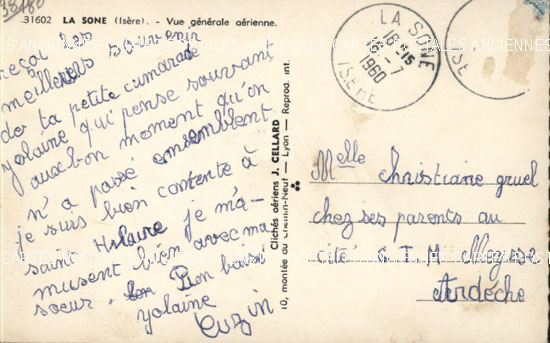 98480
31602 LA SONE (Isère). - Vue générale aérienne.
reçoi les
meillers souvenir
de ta petite camarade
yolaine qui pense souvant
aux bon moment qu'on
n'a passé ensemblent
je suis bien contente à
saint Hilaire je m'a-
musent bien avec ma
soeur. Bon baisé
yolaine
Cuzin
Clichés aériens J. CELLARD
10, montée du Chemin-Neuf — Lyon — Reprod. int.
LA SONE
16 H 15
-7
1960
ISERE
Melle Christiane gruel
chez ses parents au
cité
Ardèche
CARTES POSTALES ANCIENNES